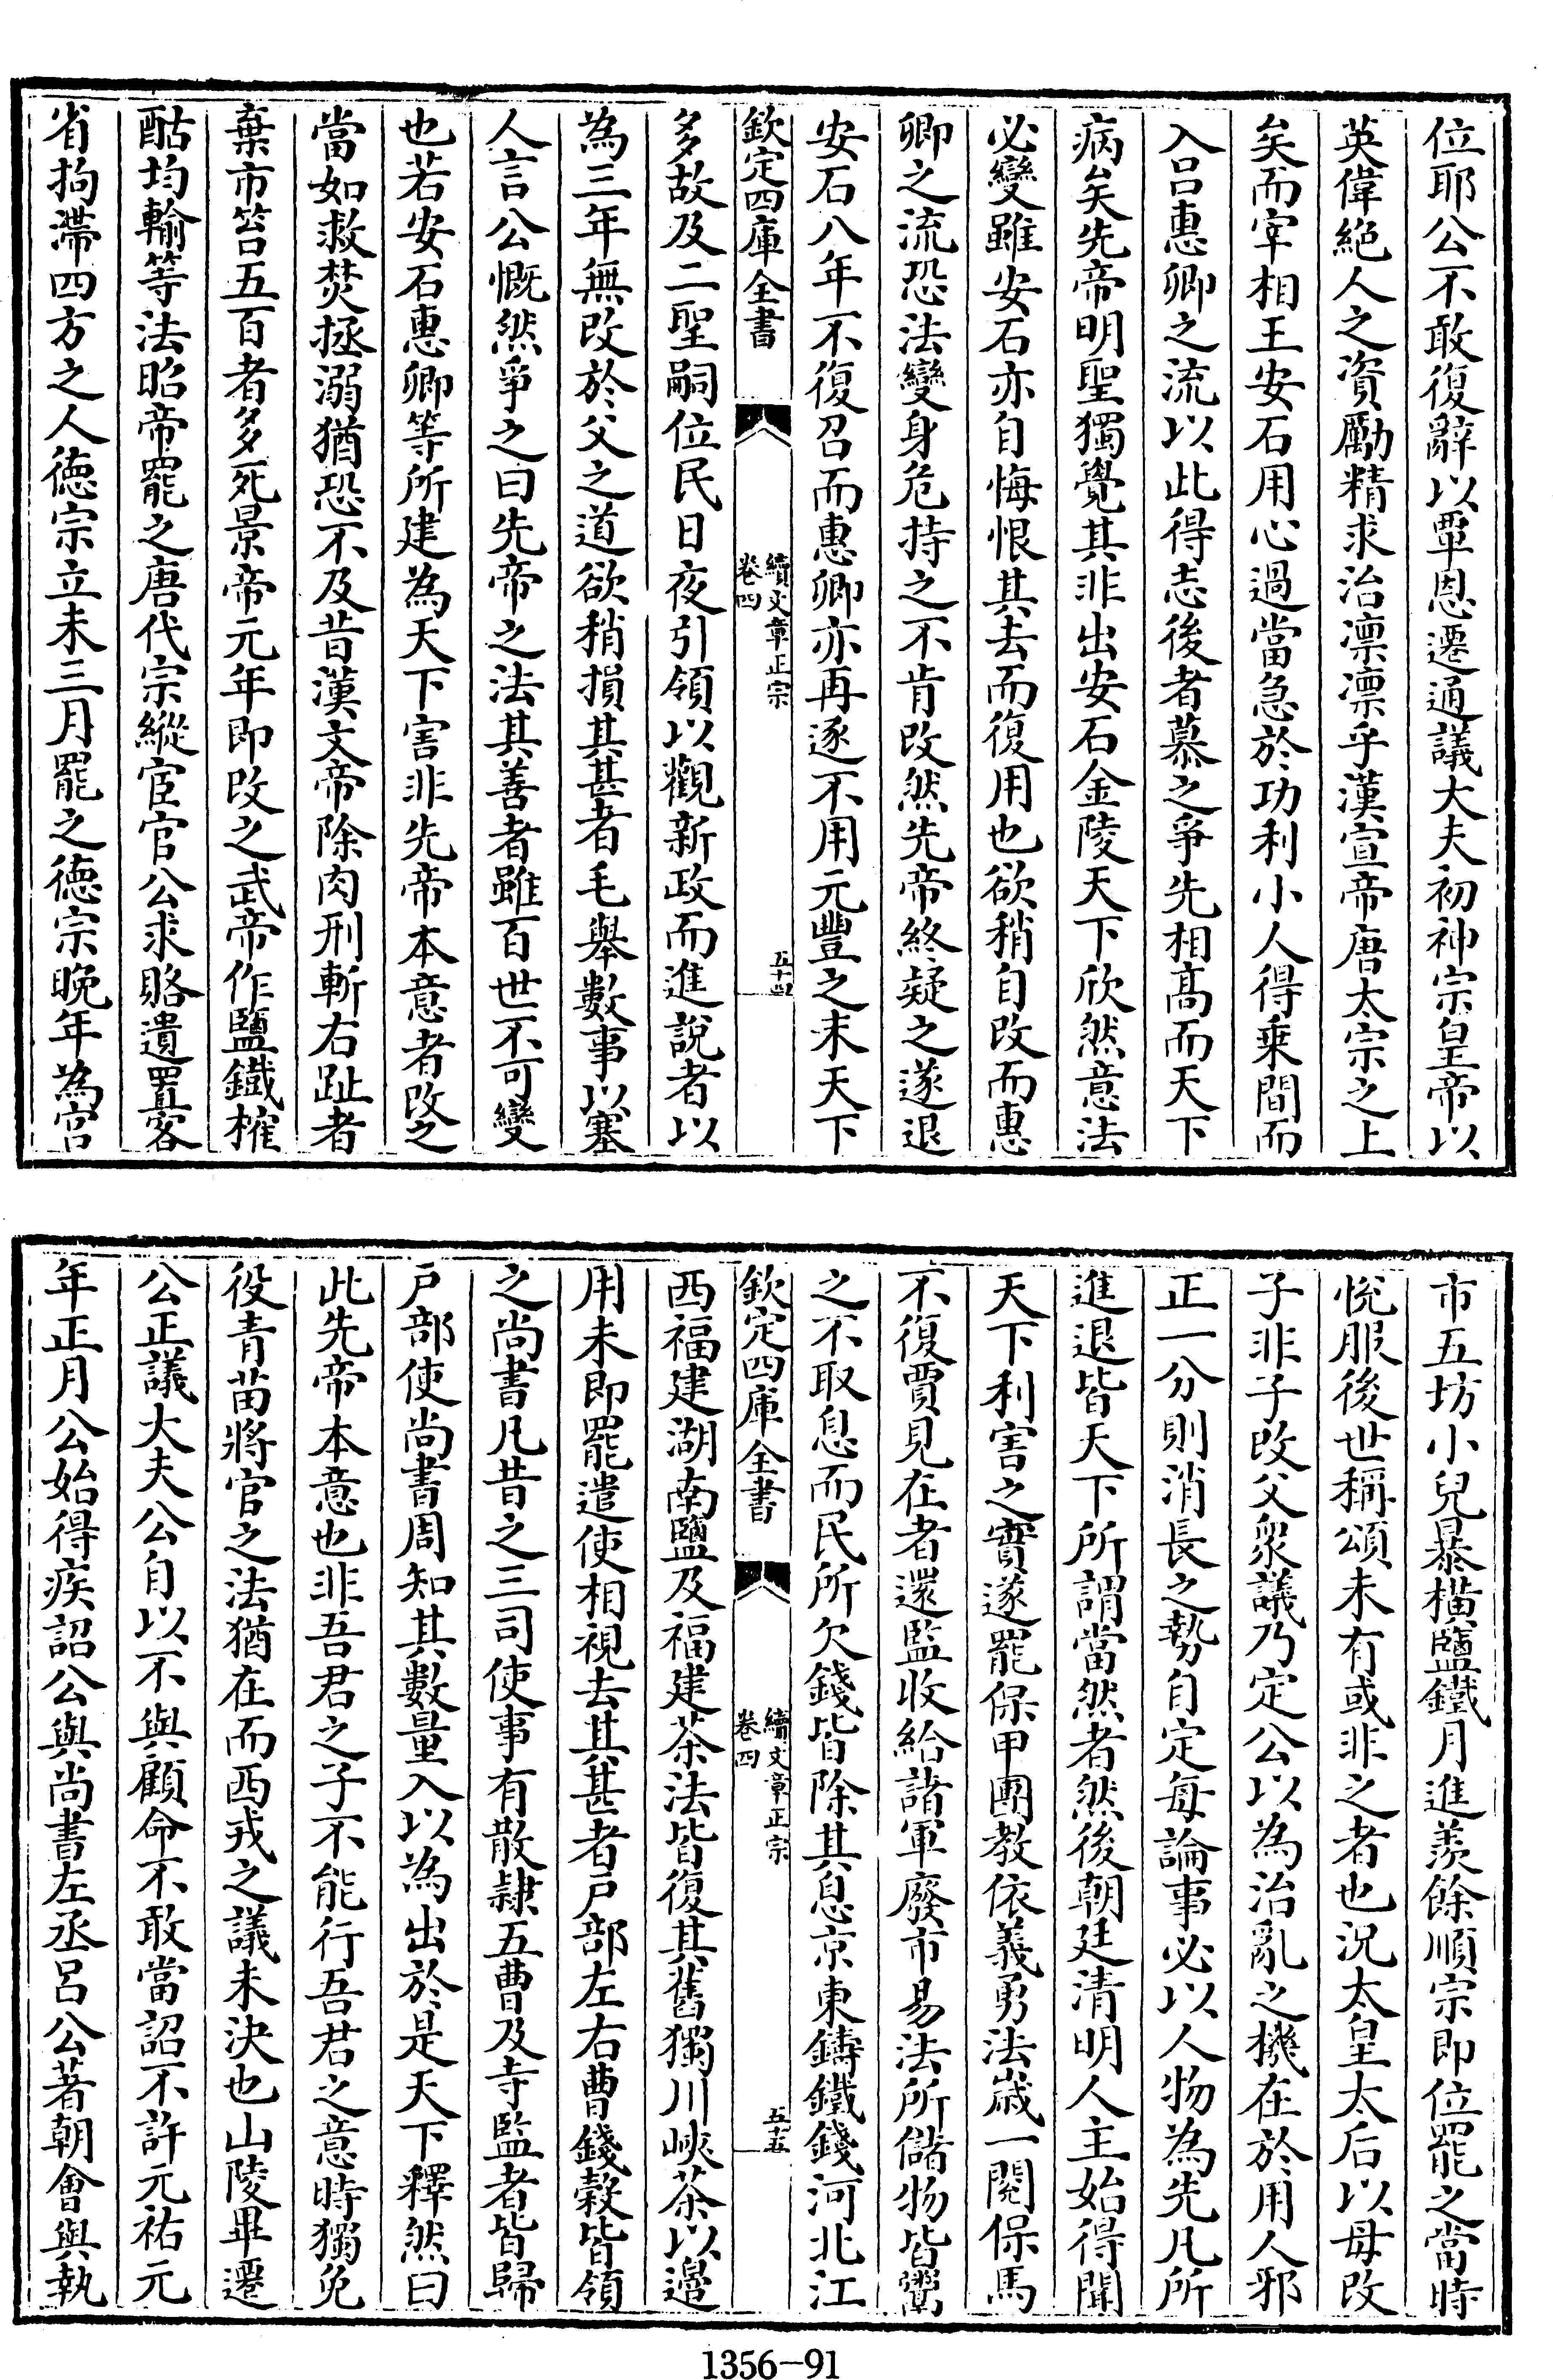 位耶公不敢復辭以覃恩遷通議大夫初神宗皇帝以
英偉絕人之資勵精求治凛凛乎漢宣帝唐太宗之上
矣而宰相王安石用心過當急於功利小人得乗間而
入呂惠卿之流以此得志後者慕之爭先相髙而天下
病矣先帝明聖獨覺其非出安石金陵天下欣然意法
必變雖安石亦自悔恨其去而復用也欲稍自改而惠
卿之流恐法變身危持之不肯改然先帝終疑之遂退
安石八年不復召而惠卿亦再逐不用元豐之末天下
欽定四庫全書
續文章正宗
卷四
五十四
多故及二聖嗣位民日夜引領以觀新政而進說者以
為三年無改於父之道欲稍損其甚者毛舉數事以塞
人言公慨然爭之曰先帝之法其善者雖百世不可變
也若安石惠卿等所建為天下害非先帝本意者改之
當如救焚拯溺猶恐不及昔漢文帝除肉刑斬右趾者
棄市笞五百者多死景帝元年即改之武帝作鹽鐵榷
酤均輸等法昭帝罷之唐代宗縱宦官公求賂遺置客
省拘滯四方之人徳宗立未三月罷之徳宗晚年為宫
市五坊小兒暴橫鹽鐵月進羨餘順宗即位罷之當時
悅服後世稱頌未有或非之者也況太皇太后以母改
子非子改父衆議乃定公以為治亂之機在於用人邪
正一分則消長之勢自定每論事必以人物為先凡所
進退皆天下所謂當然者然後朝廷清明人主始得聞
天下利害之實遂罷保甲團教依義勇法歲一閱保馬
不復買見在者還監收給諸軍廢市易法所儲物皆鬻
之不取息而民所欠錢皆除其息京東鑄鐵錢河北江
欽定四庫全書
續文章正宗
卷四
五十五
西福建湖南鹽及福建茶法皆復其舊獨川峽茶以邉
用未即罷遣使相視去其甚者戶部左右曹錢穀皆領
之尚書凡昔之三司使事有散隷五曹及寺監者皆歸
戶部使尚書周知其數量入以為出於是天下釋然曰
此先帝本意也非吾君之子不能行吾君之意時獨免
役青苗將官之法猶在而西戎之議未決也山陵畢遷
公正議大夫公自以不與顧命不敢當詔不許元祐元
年正月公始得疾詔公與尚書左丞呂公著朝會與執
1356-91